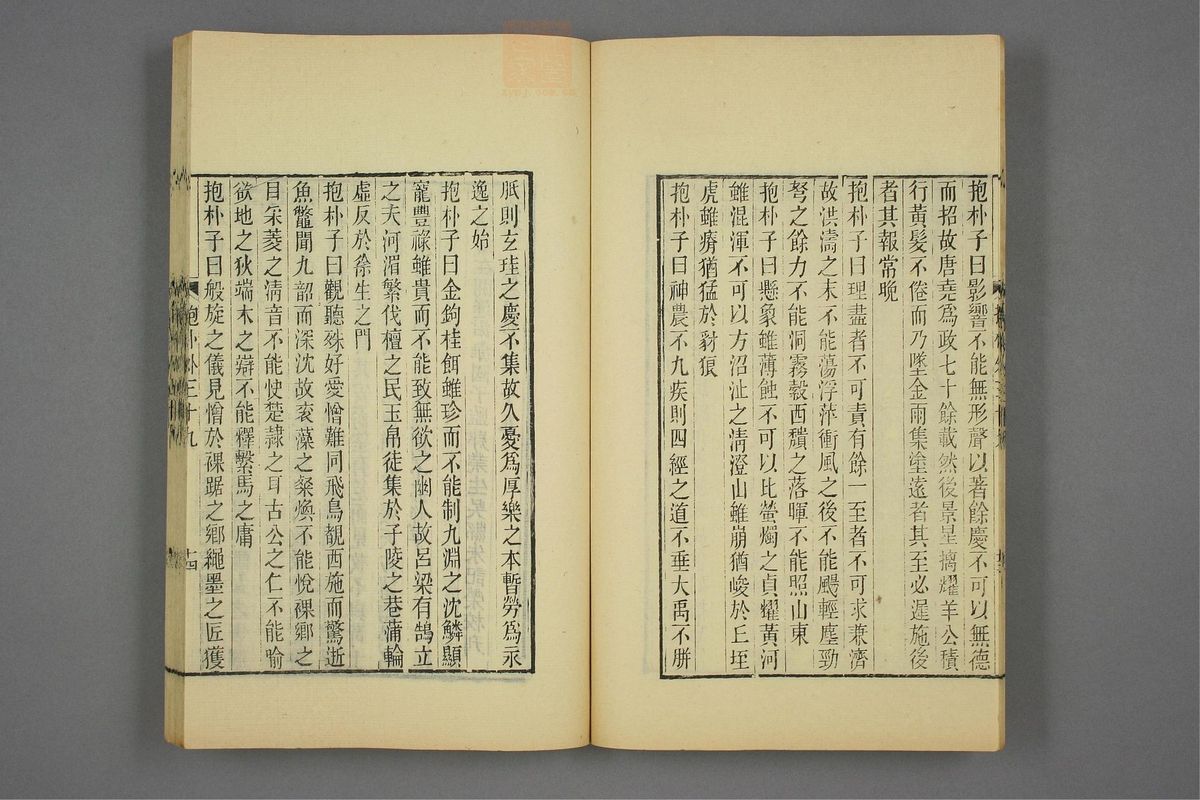 抱朴子曰影響不能無形聲以著餘慶不可以無德
而招故唐堯爲政七十餘載然後景星摛耀羊公積
行黃髮不倦而乃墜金雨集塗遠者其至必遲施後
者其報常晚
抱朴子曰理盡者不可責有餘一至者不可求兼濟
故洪濤之末不能蕩浮萍衝風之後不能颺輕塵勁
弩之餘力不能洞霧縠西穨之落暉不能照山東
抱朴子曰懸象雖薄蝕不可以比螢燭之貞耀黃河
雖混渾不可以方沼沚之淸澄山雖崩猶峻於丘垤
虎雖瘠猶猛於豺狼
抱朴子曰神農不九疾則四經之道不垂大禹不胼
胝則玄珪之慶不集故久憂爲厚樂之本暫勞爲永
逸之始
抱朴子曰金鉤桂餌雖珍而不能制九淵之沈鱗顯
寵豐祿雖貴而不能致無欲之幽人故呂梁有鵠立
之夫河湄繁伐檀之民玉帛徒集於子陵之巷蒲輪
虛反於徐生之門
抱朴子曰觀聽殊好愛憎難同飛鳥覩西施而驚逝
魚鼈聞九韶而深沈故衮藻之粲煥不能悅裸鄉之
目采菱之淸音不能快楚隸之耳古公之仁不能喻
欲地之狄端木之辯不能釋繫馬之庸
抱朴子曰般旋之儀見憎於裸踞之鄉繩墨之匠獲
抱朴外三十九
十四